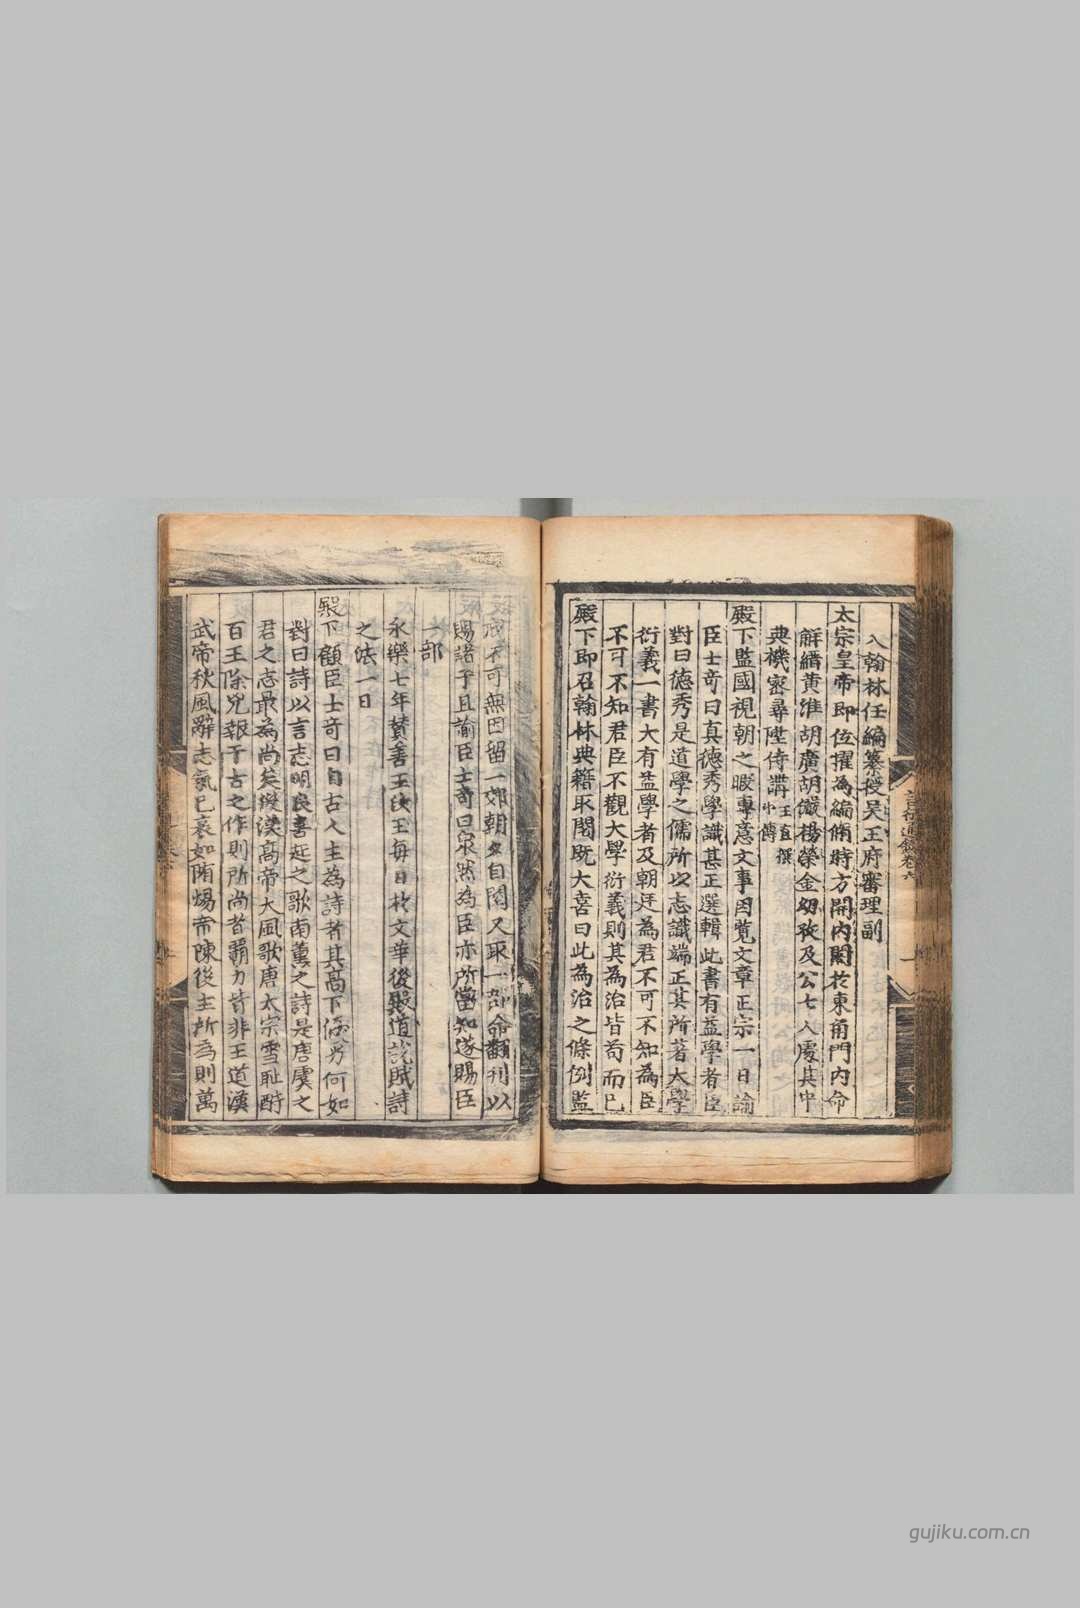 入翰林任編纂授吴王府審理副
太宗皇帝即位擢為編脩時方開内閣扵東角門内命
解縉黄淮胡廣胡儼楊榮金幼孜及公七人處其中
典機密尋陞侍講王直撰小傳
殿下監國視朝之暇專意文事因覽文章正宗一日諭
臣士竒曰真德秀學識甚正選輯此書有益學者臣
對曰德秀是道學之儒所以志識端正其所著大學
衍義一書大有益學者及朝廷為君不可不知為臣
不可不知君臣不觀大學衍義則其為治皆苟而已
殿下即召翰林典籍取閱既大喜曰此為治之條例監
戒不可無因留一部朝夕自閱又取一部命翻刊以
賜諸子且諭臣士竒曰果然為臣亦所當知遂賜臣
一部
永樂七年賛善王汝玉每日扵文華後殿道說賦詩
之法一日
殿下顧臣士竒曰自古人主為詩者其高下優劣何如
對曰詩以言志明良喜起之歌南薫之詩是唐虞之
君之志最為尚矣後漢髙帝大風歌唐太宗雪耻酧
百王除兇報千古之作則所尚者霸力皆非王道漢
武帝秋風辭志氣已衰如隋煬帝陳後主所為則萬
通錄卷六
gujiku.com.cn